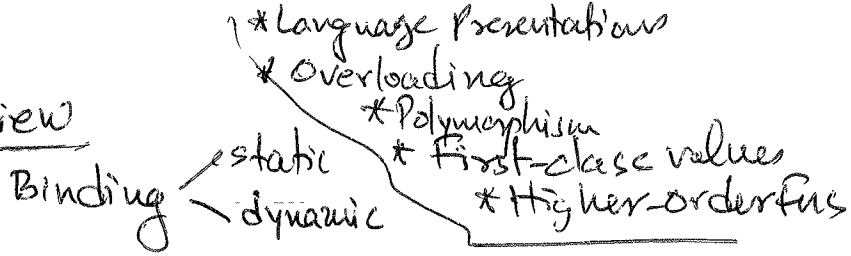 * Language Presentations
* Overloading
* Polymorphism
* First-class values
* Higher-order Fns
iew
Binding
static
dynamic